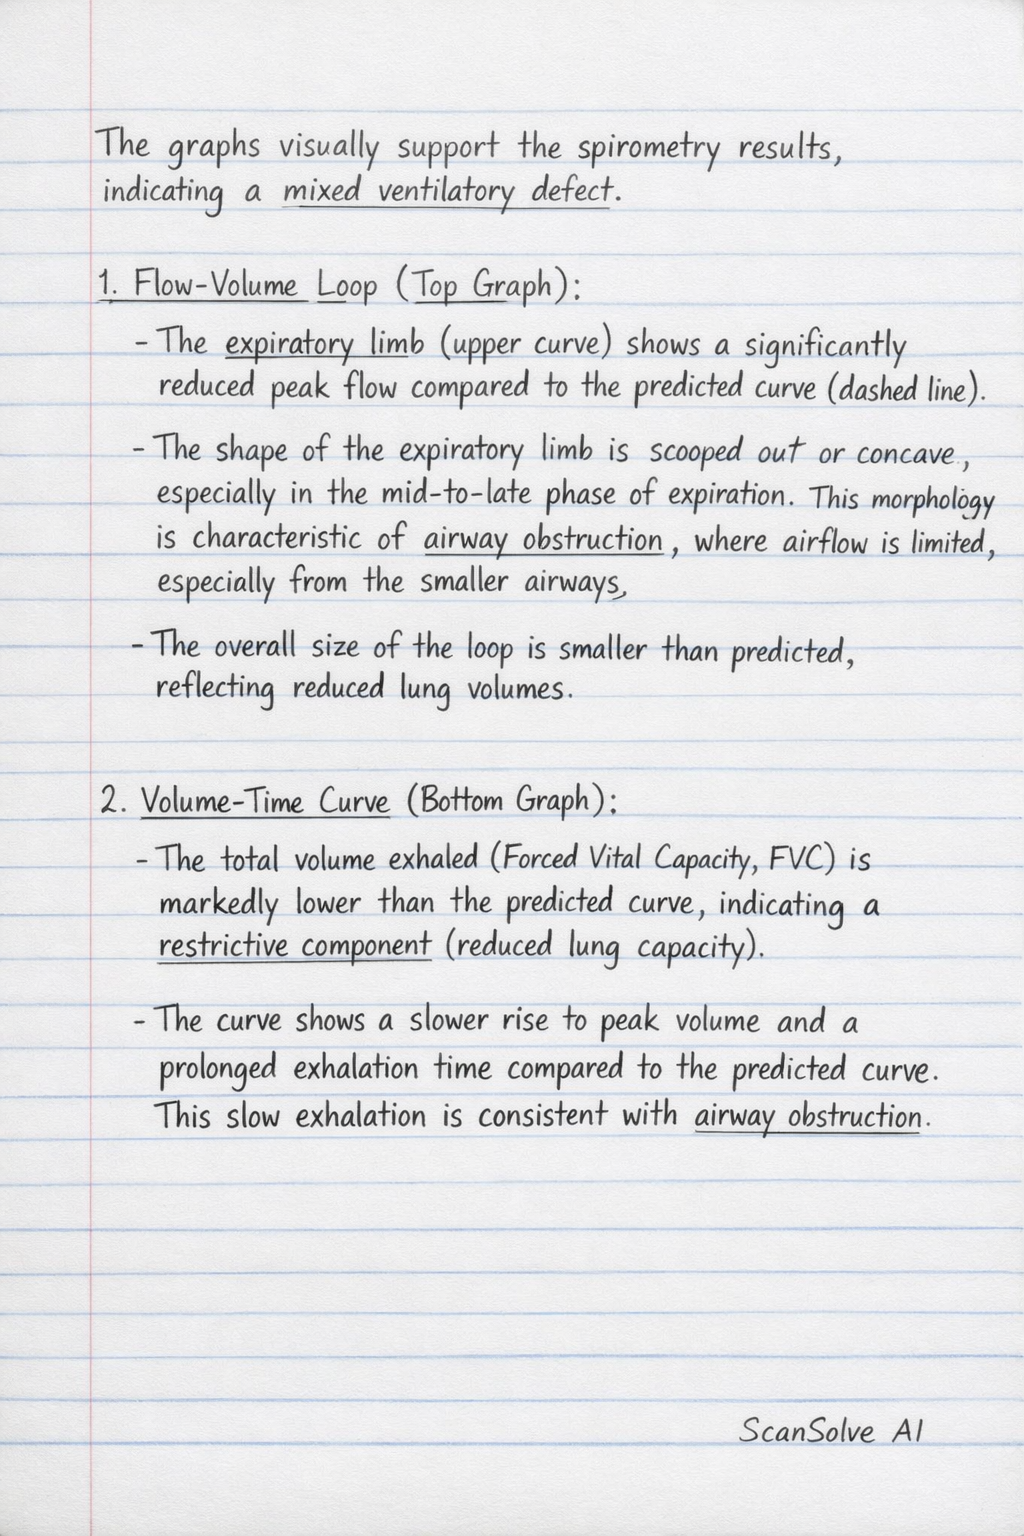 The graphs visually support the spirometry results,
indicating a mixed ventilatory defect.
1. Flow-Volume Loop (Top Graph):
- The expiratory limb (upper curve) shows a significantly
reduced peak flow compared to the predicted curve (dashed line).
- The shape of the expiratory limb is scooped out or concave,
especially in the mid-to-late phase of expiration. This morphology
is characteristic of airway obstruction, where airflow is limited,
especially from the smaller airways,
- The overall size of the loop is smaller than predicted,
reflecting reduced lung volumes.
2. Volume-Time Curve (Bottom Graph):
- The total volume exhaled (Forced Vital Capacity, FVC) is
markedly lower than the predicted curve, indicating a
restrictive component (reduced lung capacity).
- The curve shows a slower rise to peak volume and a
prolonged exhalation time compared to the predicted curve.
This slow exhalation is consistent with airway obstruction.
ScanSolve AI